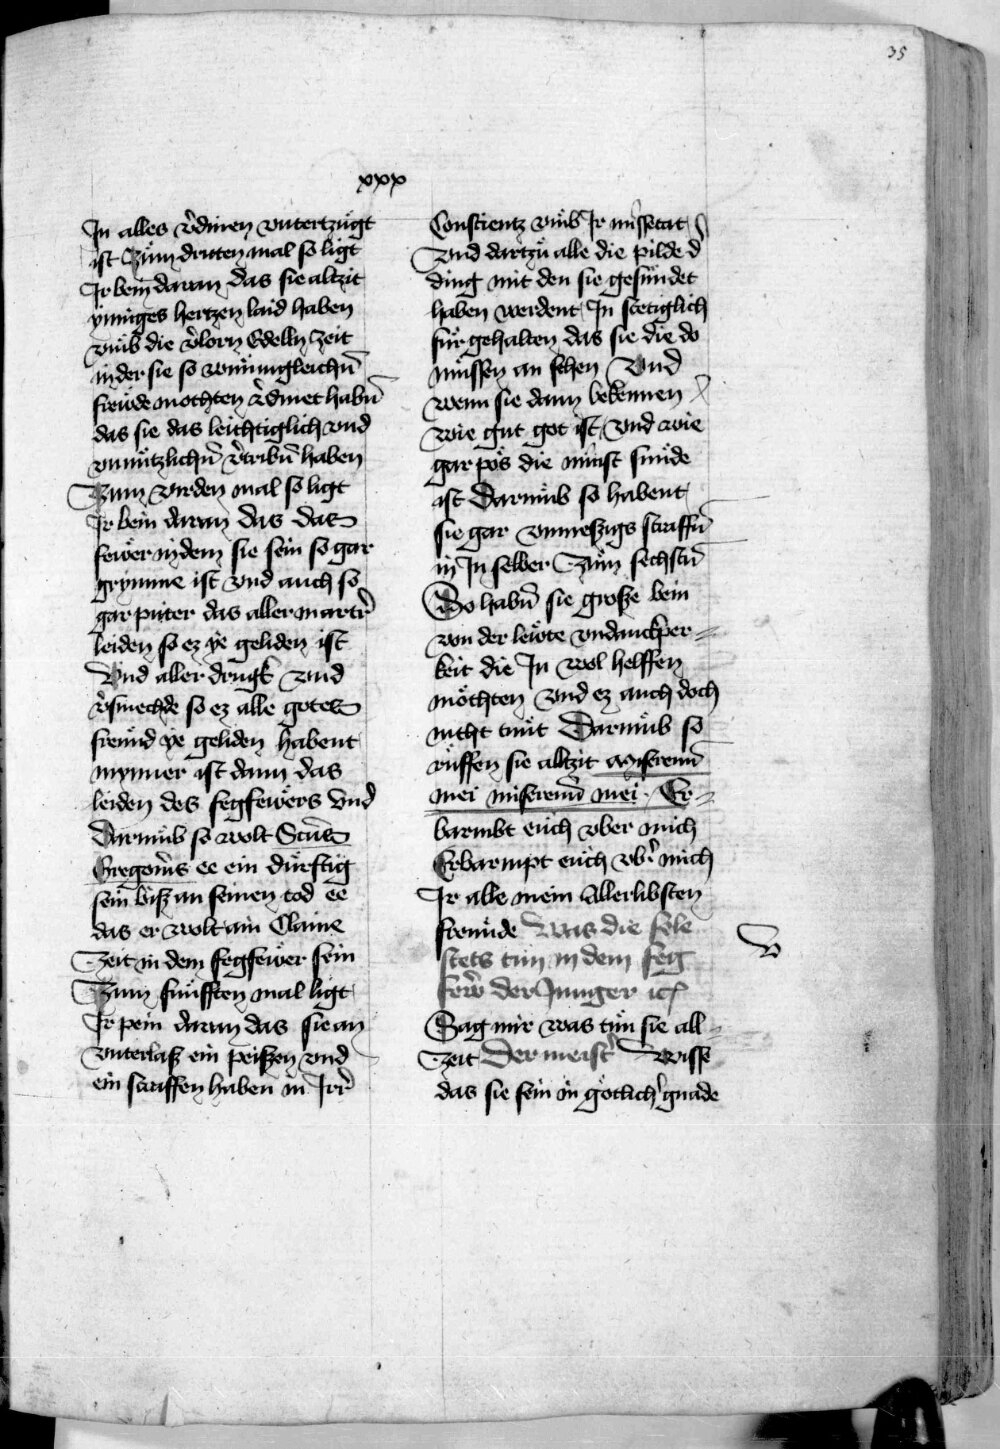 35
xxx
In alles v̾dinen vntertzu̍gt
ist Zu̍m dritten mal so ligt
Ir bein daran das sie altzit
ynniges hertzen laid haben
vmb die v̾lorn Edelln zeit
in der sie so
freude mochten v̾dinet habn̄
das sie das leichtiglich vnd
vnnu̍tzlichn̄ v̾tribn̄ haben
Zum virden mal so ligt
Ir bein daran das das
fewer in dem sie sein so gar
grymme ist vnd auch so
gar piter das aller martr̾
leiden so ez ye geliden ist
Vnd aller drugk vnd
v̾smechde so ez alle gotes
freu̍nd ye geliden habent
mynner ist dann das
leiden des fegfewers Vnd
Darumb so wolt Sctūs
Gregori̾s ee ein du̍rftig
sein bisz an seinen tod ee
das er wolt ain Claine
Zeit in dem fegfewer sein
Zum fu̍nfften mal ligt
Ir pein daran das sie an
vnterlasz ein peiszen vnd
ein straffen haben in Irr̾
Conscientz vmb Ir missetat
Vnd dartzu̍ alle die pilde d̾
ding mit den sie gesu̍ndet
haben werdent In stetiglich
fu̍r gehalten das sie die do
mu̍ssen an sehen Vnd
wenn sie dann bekennen
wie gut got ist vnd wie
gar po̍s die minst sunde
ist Darumb so habent
sie gar vnmeszigs straffn̄
in In selber Zu̍m sechstn̄
So habn̄ sie grosze bein
von der lewte vndanckper=
keit die In wol helffen
mo̍chten vnd ez auch doch
nicht tu̍nt Darumb so
ru̍ffen sie altzit Miseremī
mei miseremī mei · Er=
barmbt euch vber mich
Erbarmpt euch vbr̾ mich
Ir alle mein Allerlibsten
freunde Was die sele
stets tun in dem feg
few̾ der Junger ict
Sag mir was tu̍n sie all=
Zeit Der meistr̾ Wisse
das sie sein in go̍tlichr̾ gnade
W